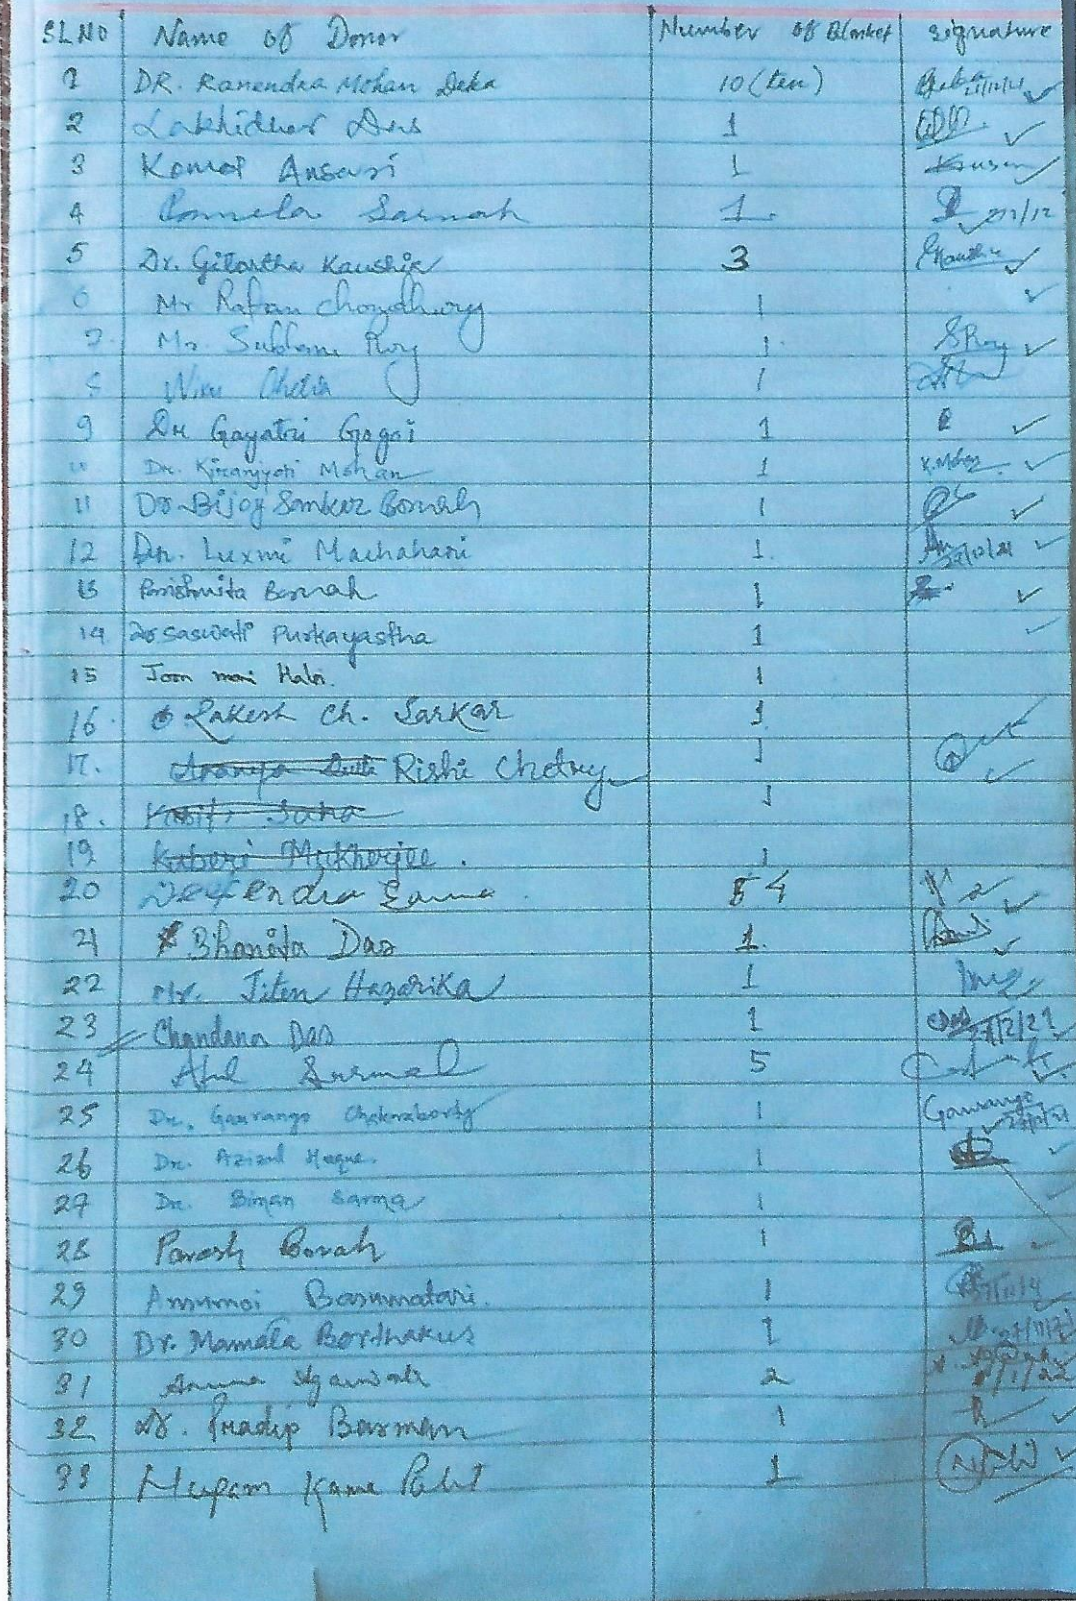 SL NO Name of Donor Number of Blanket Signature
1 DR. Ranendra Mohan Deka 10 (ten)
2 Lakhidhar Das 1
3 Komal Ansari 1
4 Pamela Sarmah 1. 27/12
5 Dr. Gitartha Kaushik 3
6 Mr Rafan Choudhury 1
7. Mr. Subham Roy 1. SRoy
8 Chetia 1
9 Dr Gayatri Gogoi 1
10 Dr. Kiranjyoti Mohan 1 K. Mohan
11 Dr Bijoy Sankar Borah 1
12 Dr. Luxmi 1. 27/12/21
13 Parishmita Borah 1
14 Dr Saswati Purkayastha 1
15 Joon moni Haloi. 1
16. Rakesh Ch. Sarkar 1
17. Rishi Chetry 1
18. Saha 1
19 Kaberi Mukherjee. 1
20 Sarma 4
21 Bhanita Das 1.
22 Mr. Jiten Hazarika 1
23 Chandana Das 1 27/12/21
24 Atul 5
25 Dr. Gaurango Chakraborty 1 Gaurango 27/12/21
26 Dr. Azizul Haque. 1
27 Dr. Biman Sarma 1
28 Parash Borah 1
29 Basumatari. 1
30 Dr. Mamata Borthakur 1
31 Agarwala 2 /1/22
32 Dr. Pradip Barman 1
33 1